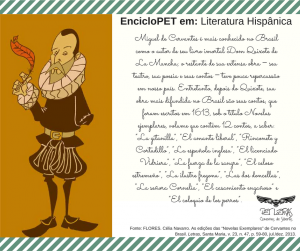 EncicloPET em: Literatura Hispânica
Miguel de Cervantes é mais conhecido no Brasil
como o autor de seu livro imortal Dom Quixote de
La Mancha; o restante de sua extensa obra – seu
teatro, sua poesia e seus contos – tem pouca repercussão
em nosso país. Entretanto, depois do Quixote, sua
obra mais difundida no Brasil são seus contos, que
foram escritos em 1613, sob o título Novelas
ejemplares, volume que contém 12 contos, a saber:
"La gitanilla", "El amante liberal", "Rinconete y
Cortadillo", "La española inglesa", "El licenciado
Vidriera", "La fuerza de la sangre", "El celoso
extremeño", "La ilustre fregona", "Las dos doncellas",
"La señora Cornelia", "El casamiento engañoso" e
"El coloquio de los perros".
PET LETRAS
Fonte: FLORES. Célia Navarro. As edições das "Novelas Exemplares" de Cervantes no
Brasil. Letras, Santa Maria, v. 23, n. 47, p. 59-80, jul./dez. 2013